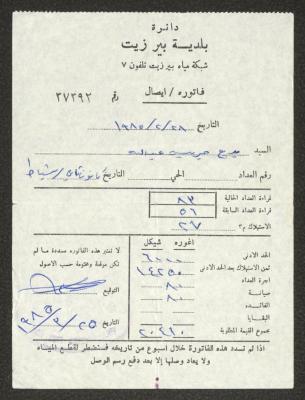 دائرة
بلدية بير زيت
شبكة مياه بير زيت تلفون ٧
فاتورة / ايصال رقم ٣٧٣٩٢
التاريخ ٢٨/٢/١٩٨٥
السيد
رقم العداد الحي التاريخ كانون ثاني / شباط
قراءة العداد الحالية ٨٣
قراءة العداد السابقة ٥٦
الاستهلاك م٣ ٢٧
اغوره شيكل
الحد الادنى ٦٠٠٠
ثمن الاستهلاك بعد الحد الادنى ١٤٢٥٠
اجرة العداد ٨٠
صيانة ٨٠
الفائدة
البقايا
مجموع القيمة المطلوبة ٢٠٤١٠
لا تعتبر هذه الفاتورة مسددة ما لم
تكن موقعة ومختومة حسب الاصول
التوقيع
التاريخ ٢٥/٣/١٩٨٥
اذا لم تسدد هذه الفاتورة خلال اسبوع من تاريخه فسنضطر لقطع المياه
ولا يعاد وصلها إلا بعد دفع رسم الوصل